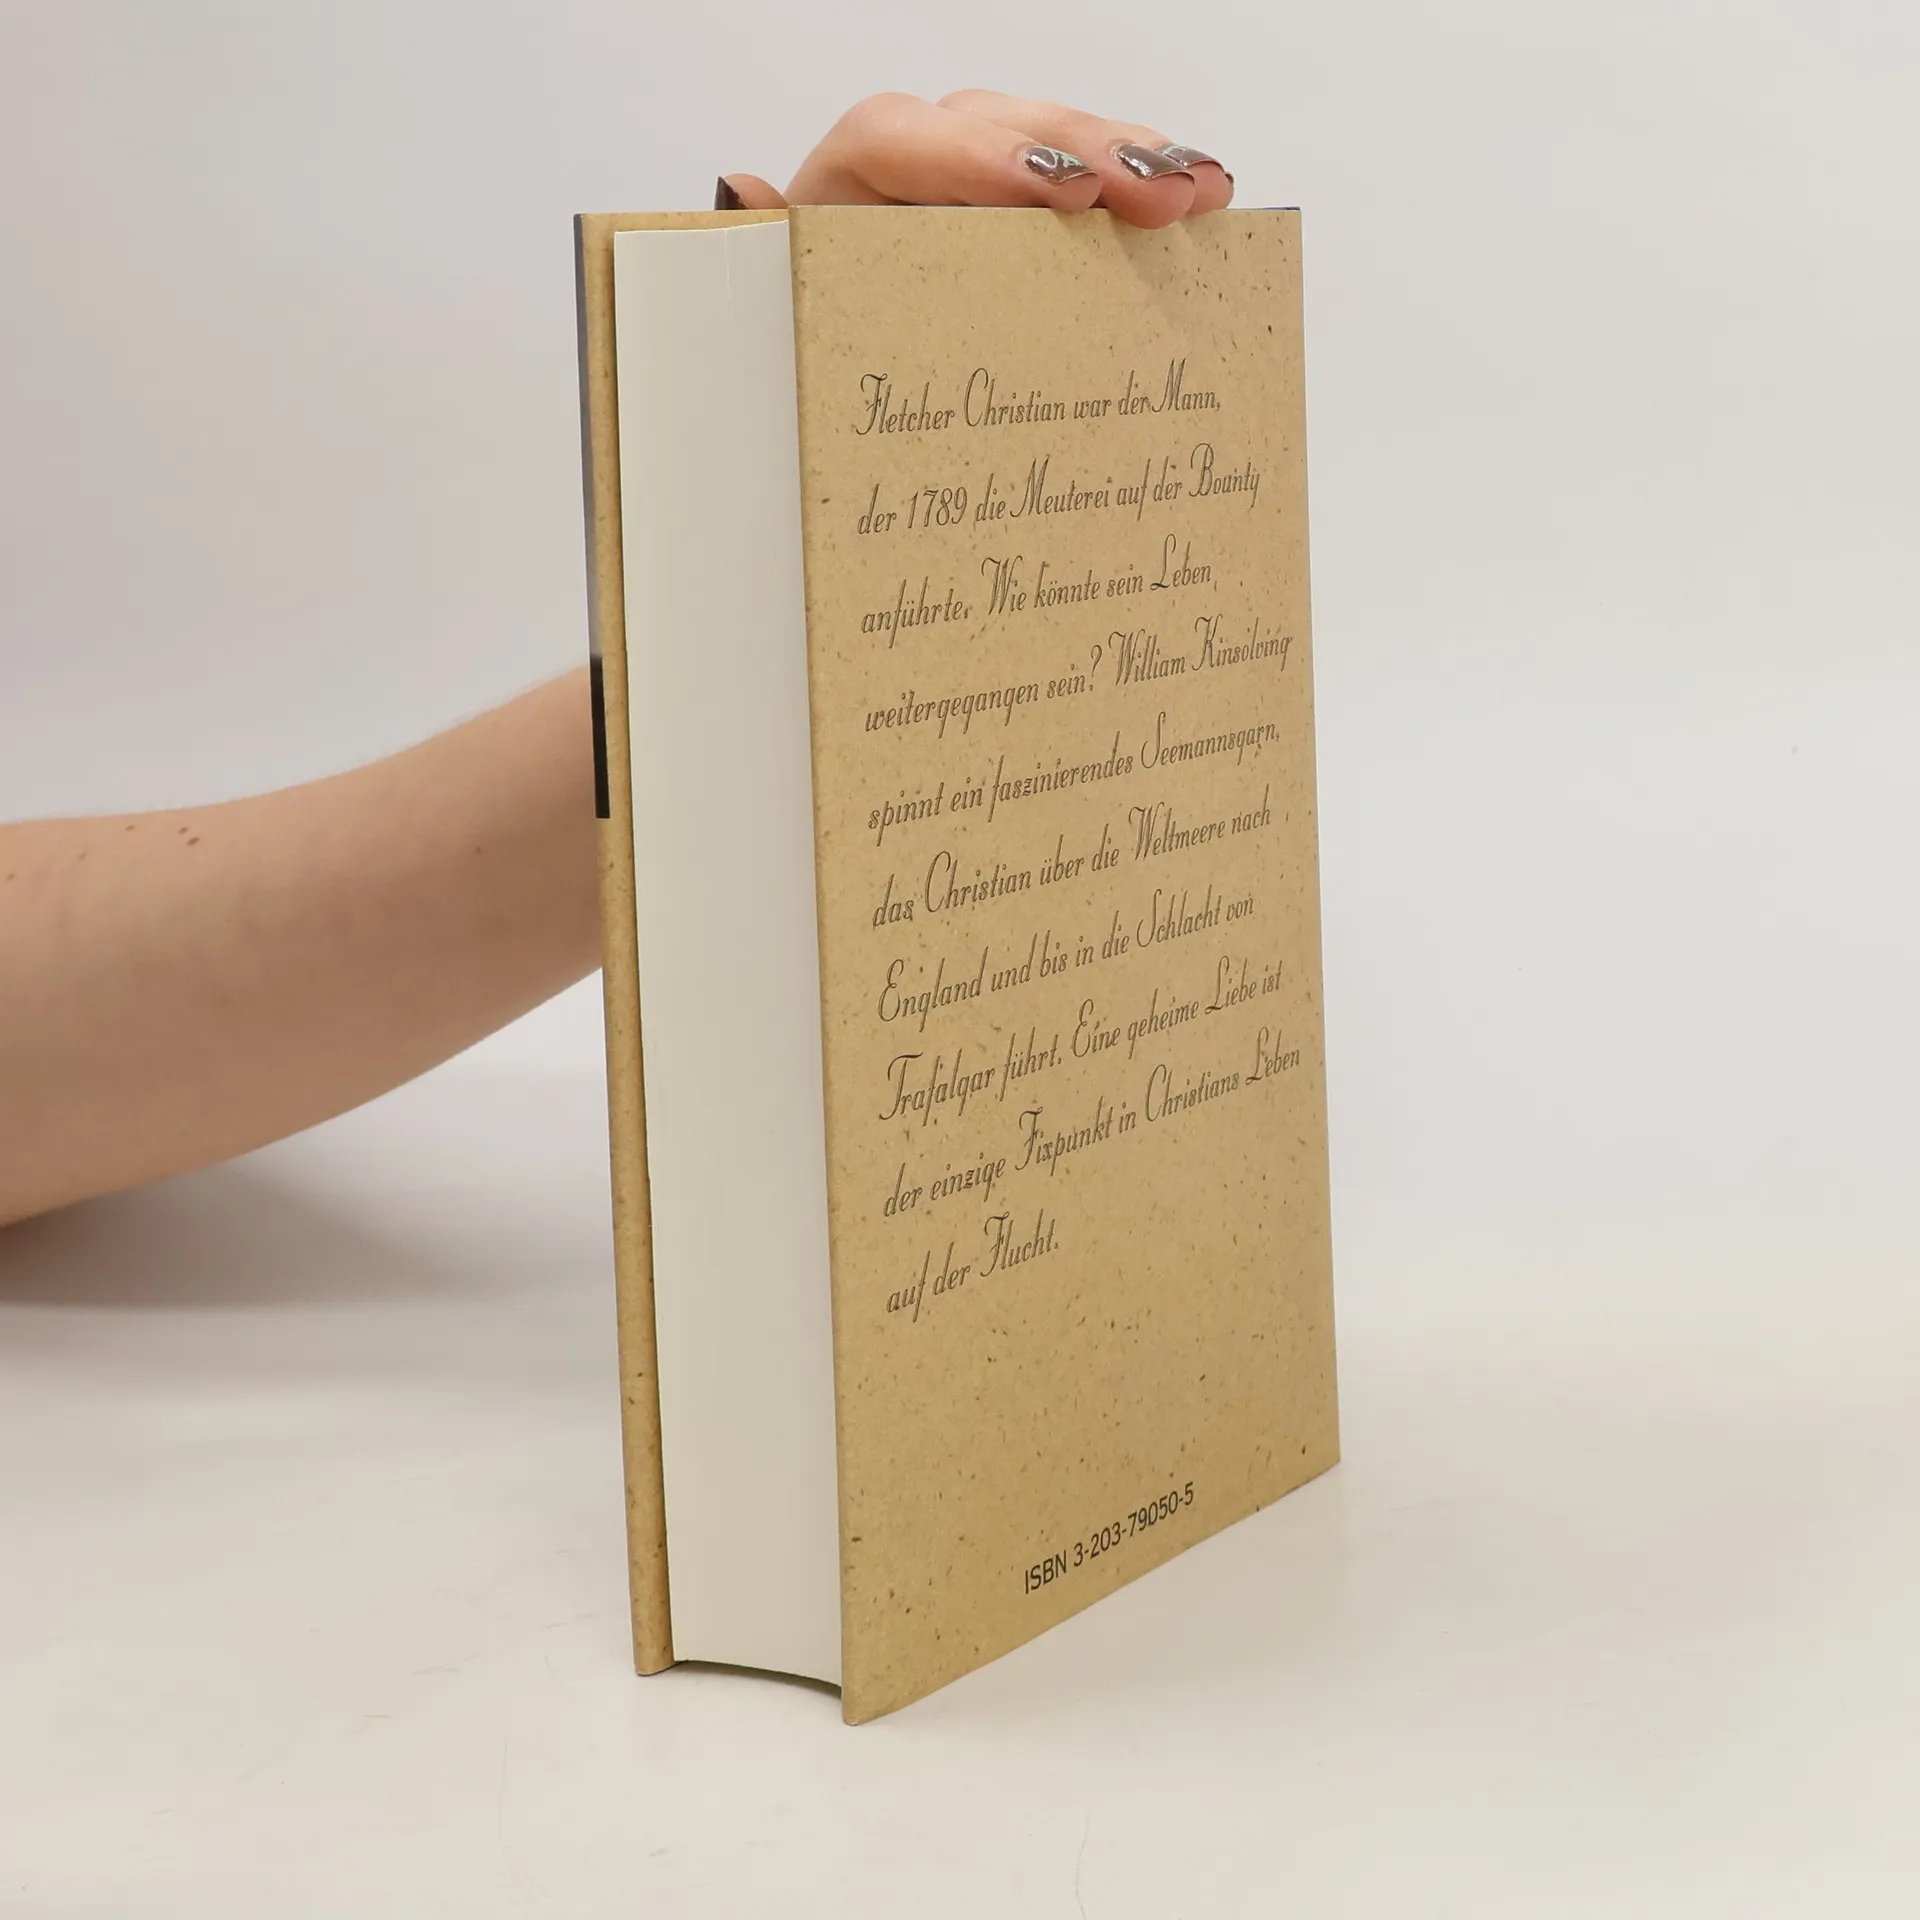 Fletcher Christian war der Mann,
der 1789 die Meuterei auf der Bounty
anführte. Wie könnte sein Leben
weitergegangen sein? William Kinsolving
spinnt ein faszinierendes Seemannsgarn,
das Christian über die Weltmeere nach
England und bis in die Schlacht von
Trafalgar führt. Eine geheime Liebe ist
der einzige Fixpunkt in Christians Leben
auf der Flucht.
ISBN 3-203-79050-5